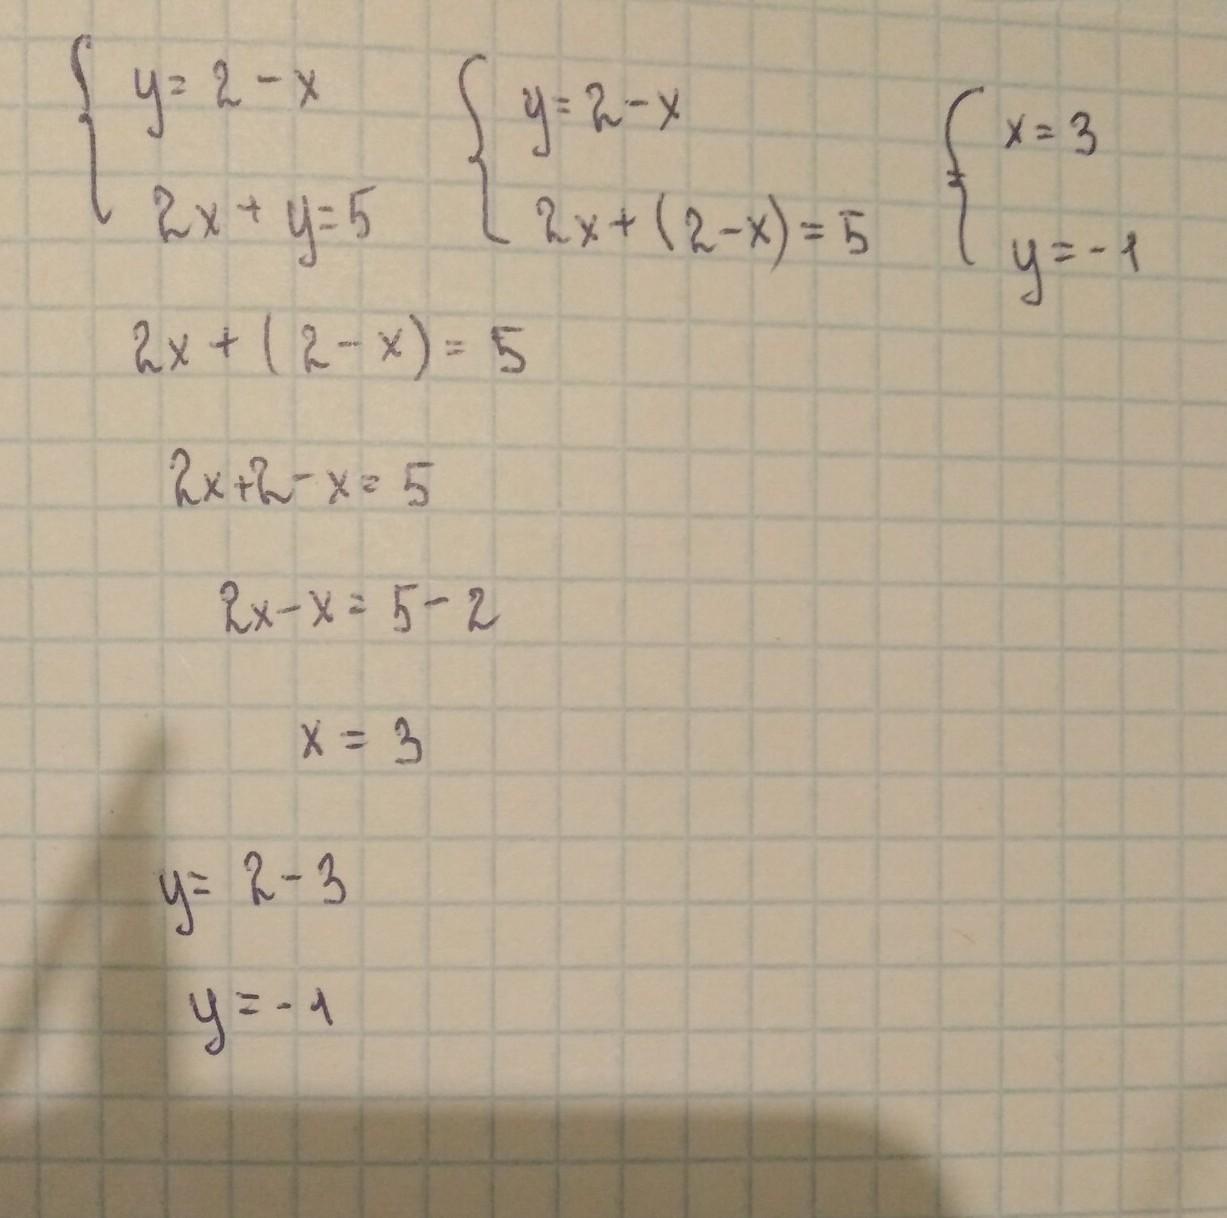 y = 2 - x
2x + y = 5
y = 2 - x
2x + (2 - x) = 5
x = 3
y = - 1
2x + (2 - x) = 5
2x + 2 - x = 5
2x - x = 5 - 2
x = 3
y = 2 - 3
y = - 1